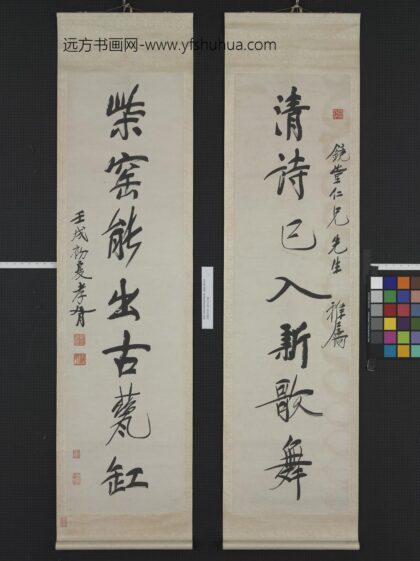 远方书画网-www.yfshuhua.com
清诗已入新歌舞
镜堂仁兄先生 雅属
柴窑能出古甆缸
壬戌初夏孝胥